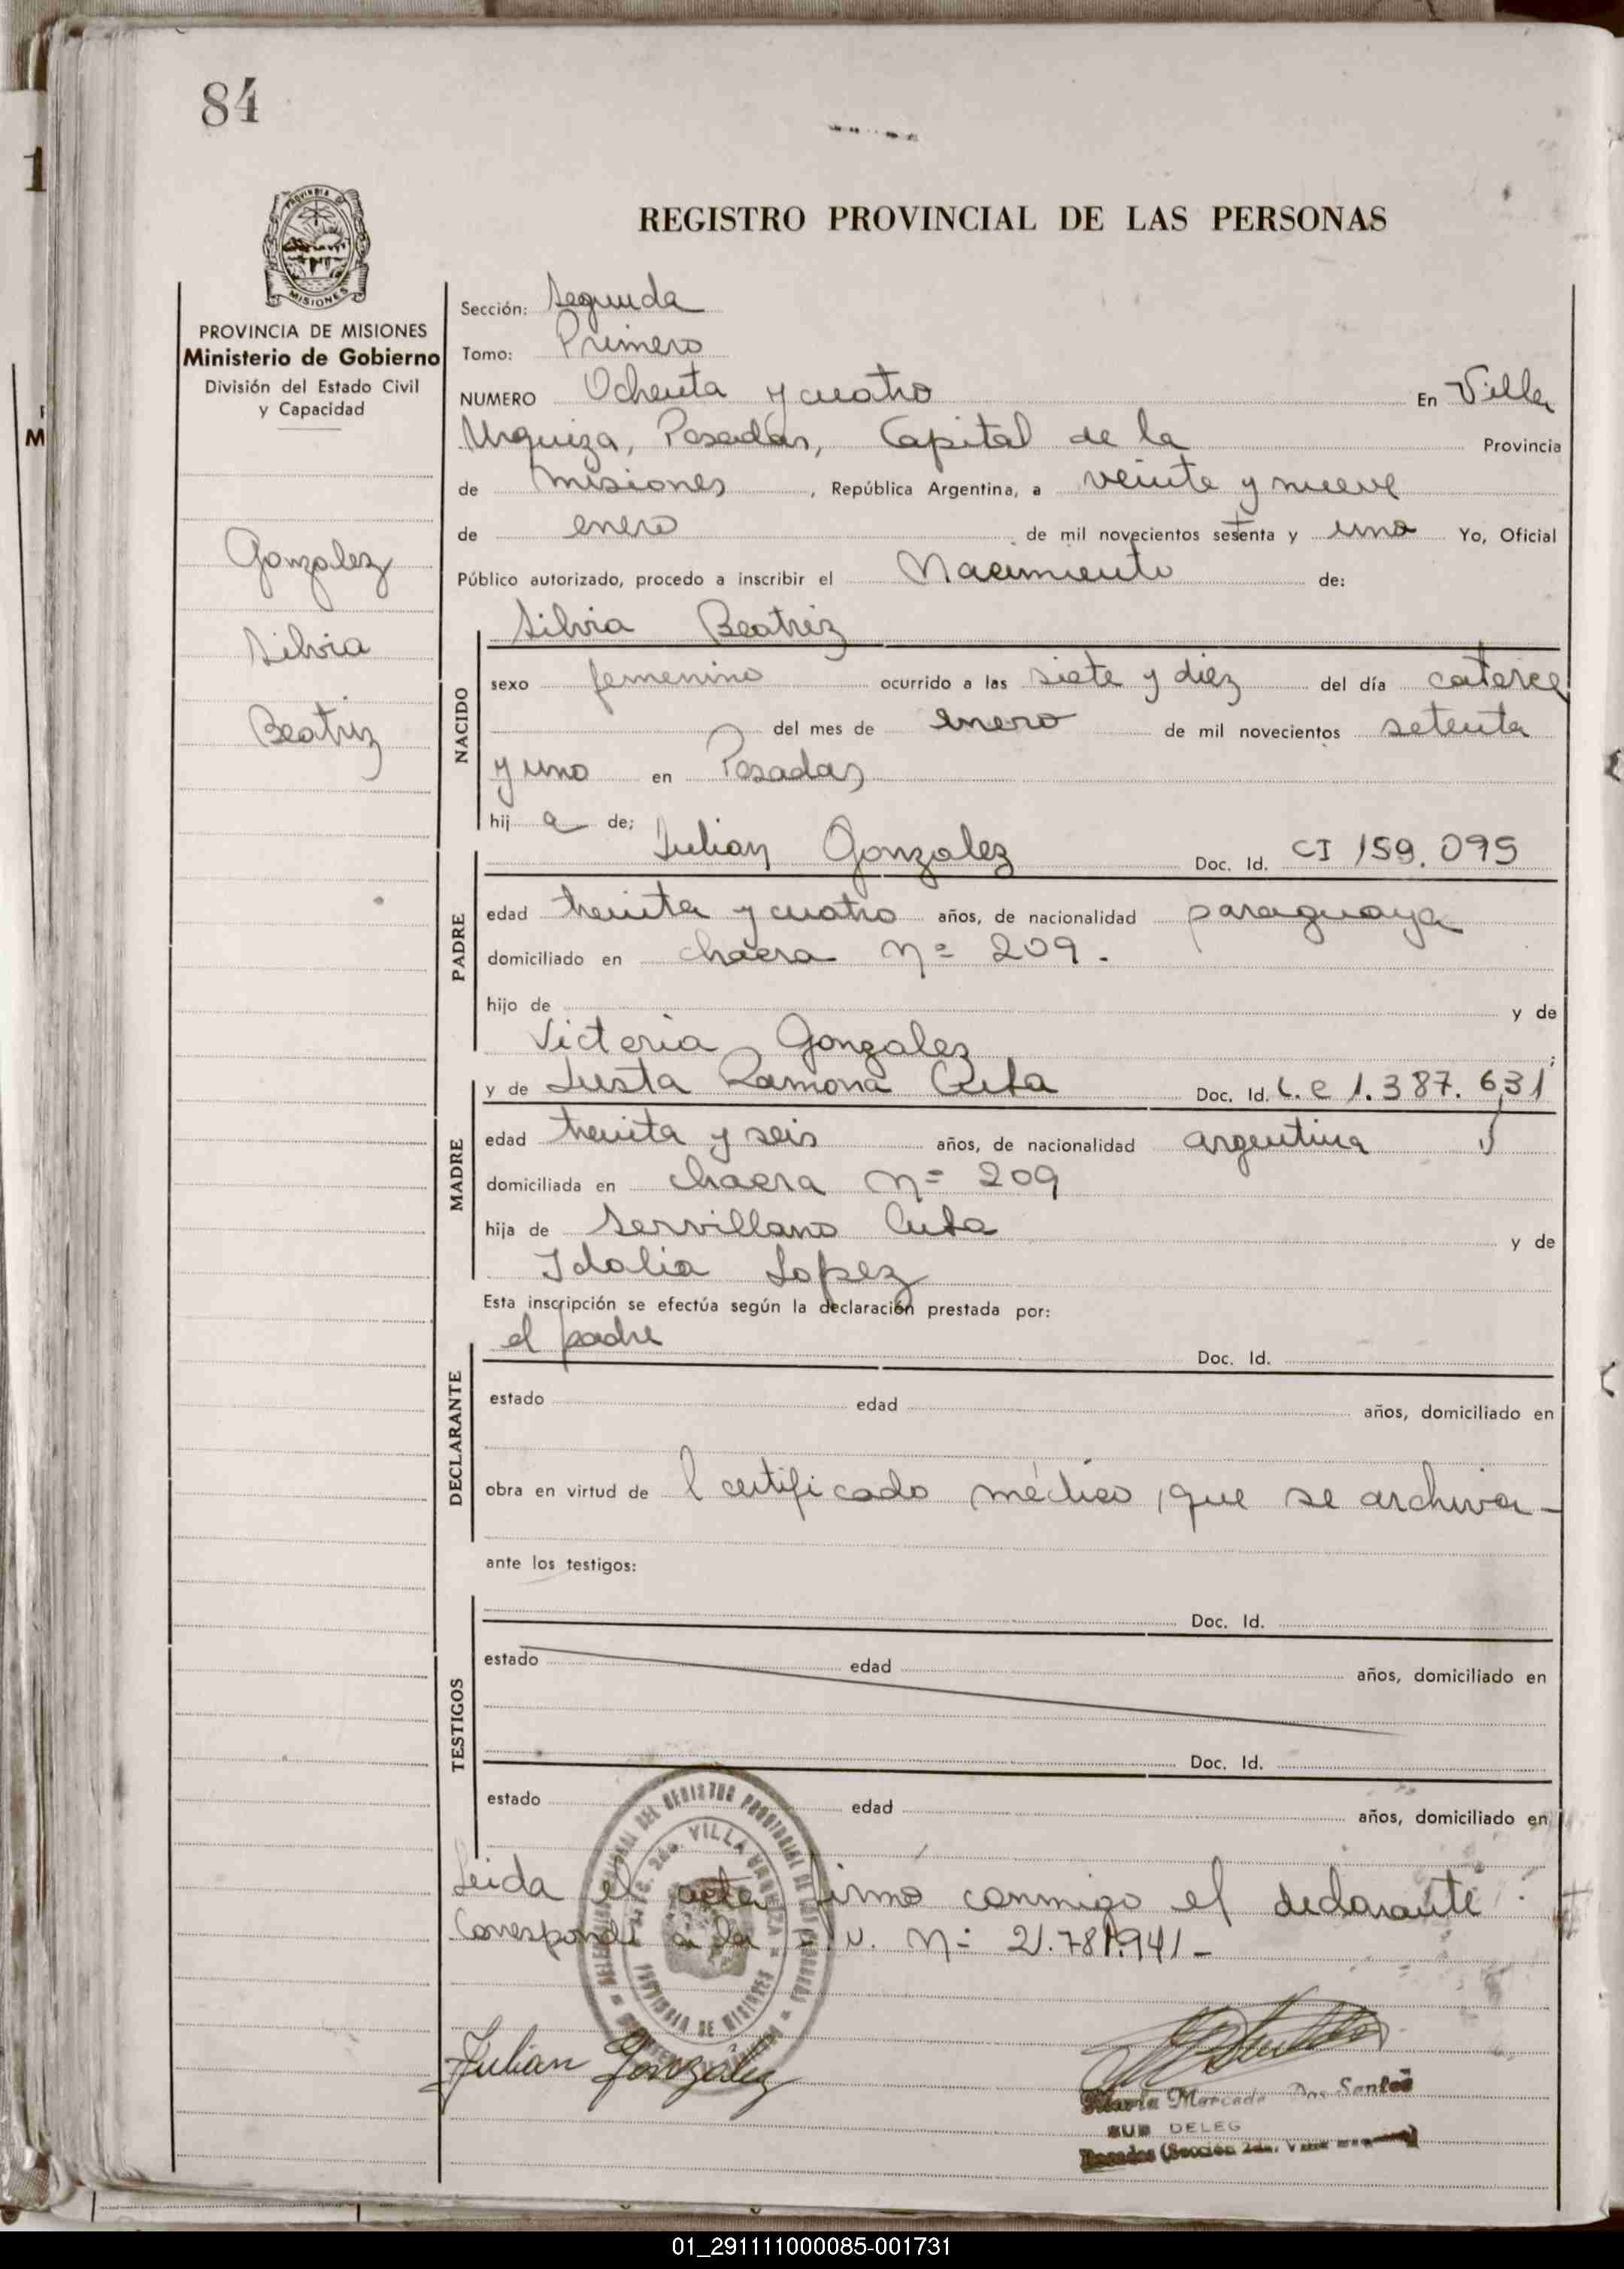 84
REGISTRO PROVINCIAL DE LAS PERSONAS
PROVINCIA DE
MISIONES
PROVINCIA DE MISIONES
Ministerio de Gobierno
División del Estado Civil
y Capacidad
Gonzalez
Silvia
Beatriz
Sección: Segunda
Tomo: Primero
NUMERO Ochenta y cuatro En Villa
Urquiza, Posadas, Capital de la Provincia
de Misiones, República Argentina, a veinte y nueve
de enero de mil novecientos setenta y uno Yo, Oficial
Público autorizado, procedo a inscribir el Nacimiento de:
Silvia Beatriz
NACIDO
sexo femenino ocurrido a las siete y diez del día catorce
del mes de enero de mil novecientos setenta
y uno en Posadas
hija de;
Julian Gonzalez Doc. Id. CI 159.095
PADRE
edad treinta y cuatro años, de nacionalidad paraguaya
domiciliado en chacra Nº 209.
hijo de y de
Victoria Gonzalez;
y de Justa Ramona Doc. Id. L.C 1.387.631
MADRE
edad treinta y seis años, de nacionalidad argentina
domiciliada en chacra Nº 209
hija de Servillano y de
Idalia Lopez
Esta inscripción se efectúa según la declaración prestada por:
el padre Doc. Id.
DECLARANTE
estado edad años, domiciliado en
obra en virtud de l certificado médico, que se archiva-
ante los testigos:
Doc. Id.
TESTIGOS
estado edad años, domiciliado en
Doc. Id.
estado edad años, domiciliado en
Leida el acta firmó conmigo el declarante.
Corresponde a la N. Nº 21.781.941-
DEL REGISTRO PROVINCIAL DE LAS PERSONAS
VILLA URQUIZA
PROVINCIA DE MISIONES
Julian González
María Mercede Dos Santos
SUB DELEG
Posadas (Sección 2da.
01_291111000085-001731